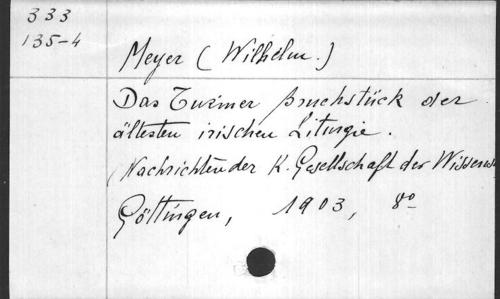 333
135-4
Meyer (Wilhelm.)
Das Turiner Bruchstück der
ältesten irischen Liturgie.
(Nachrichten der K. Gesellschaft der Wissensch
Göttingen, 1903, 8º